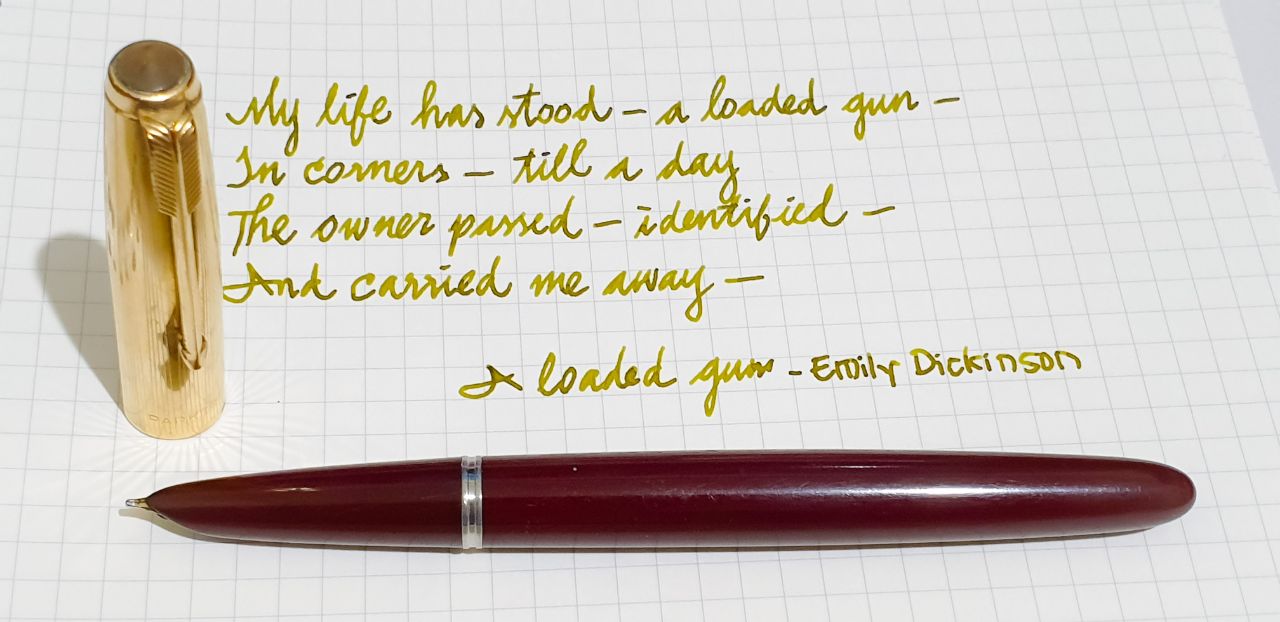 My life has stood – a loaded gun –
In corners – till a day
The owner passed – identified –
And carried me away –
A loaded gun - Emily Dickinson
PARKER